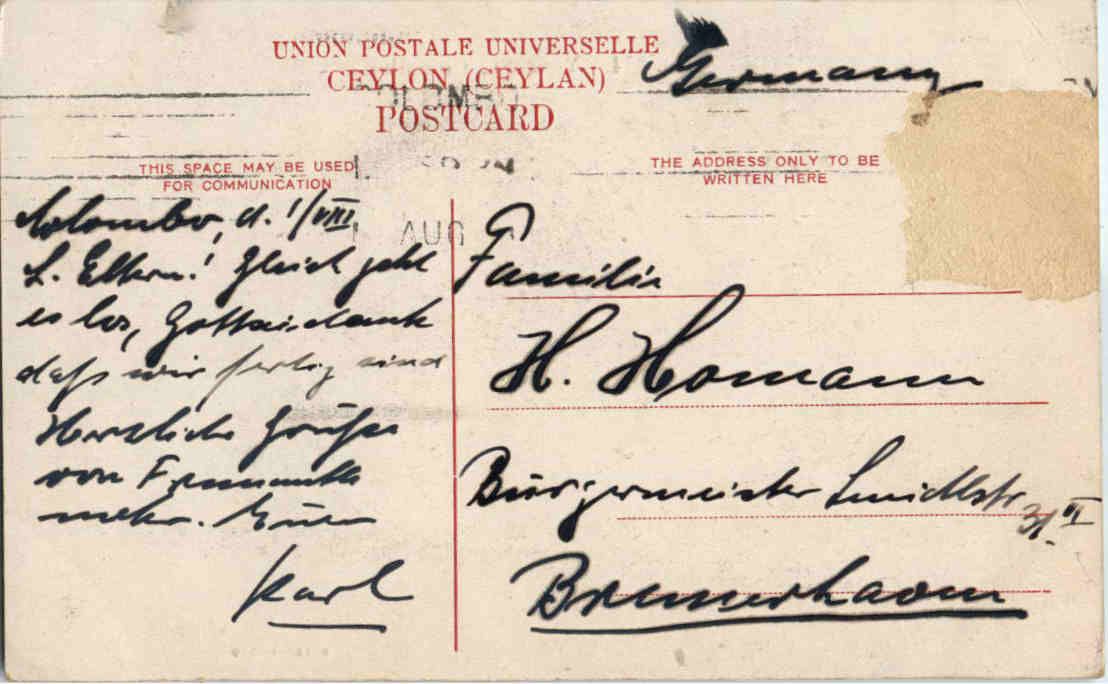 UNION POSTALE UNIVERSELLE
CEYLON (CEYLAN)
POSTCARD
Germany
COLOMBO
THIS SPACE MAY BE USED
FOR COMMUNICATION
THE ADDRESS ONLY TO BE
WRITTEN HERE
AUG
Colombo, d. 1/VIII.
L. Eltern! Gleich geht
es los, Gottseidank
daß wir fertig sind
Herzliche Grüße
von Fremantle
mehr. Euer
Karl
Familie
H. Homann
Bürgermeister Smidtstr
31 II
Bremerhaven